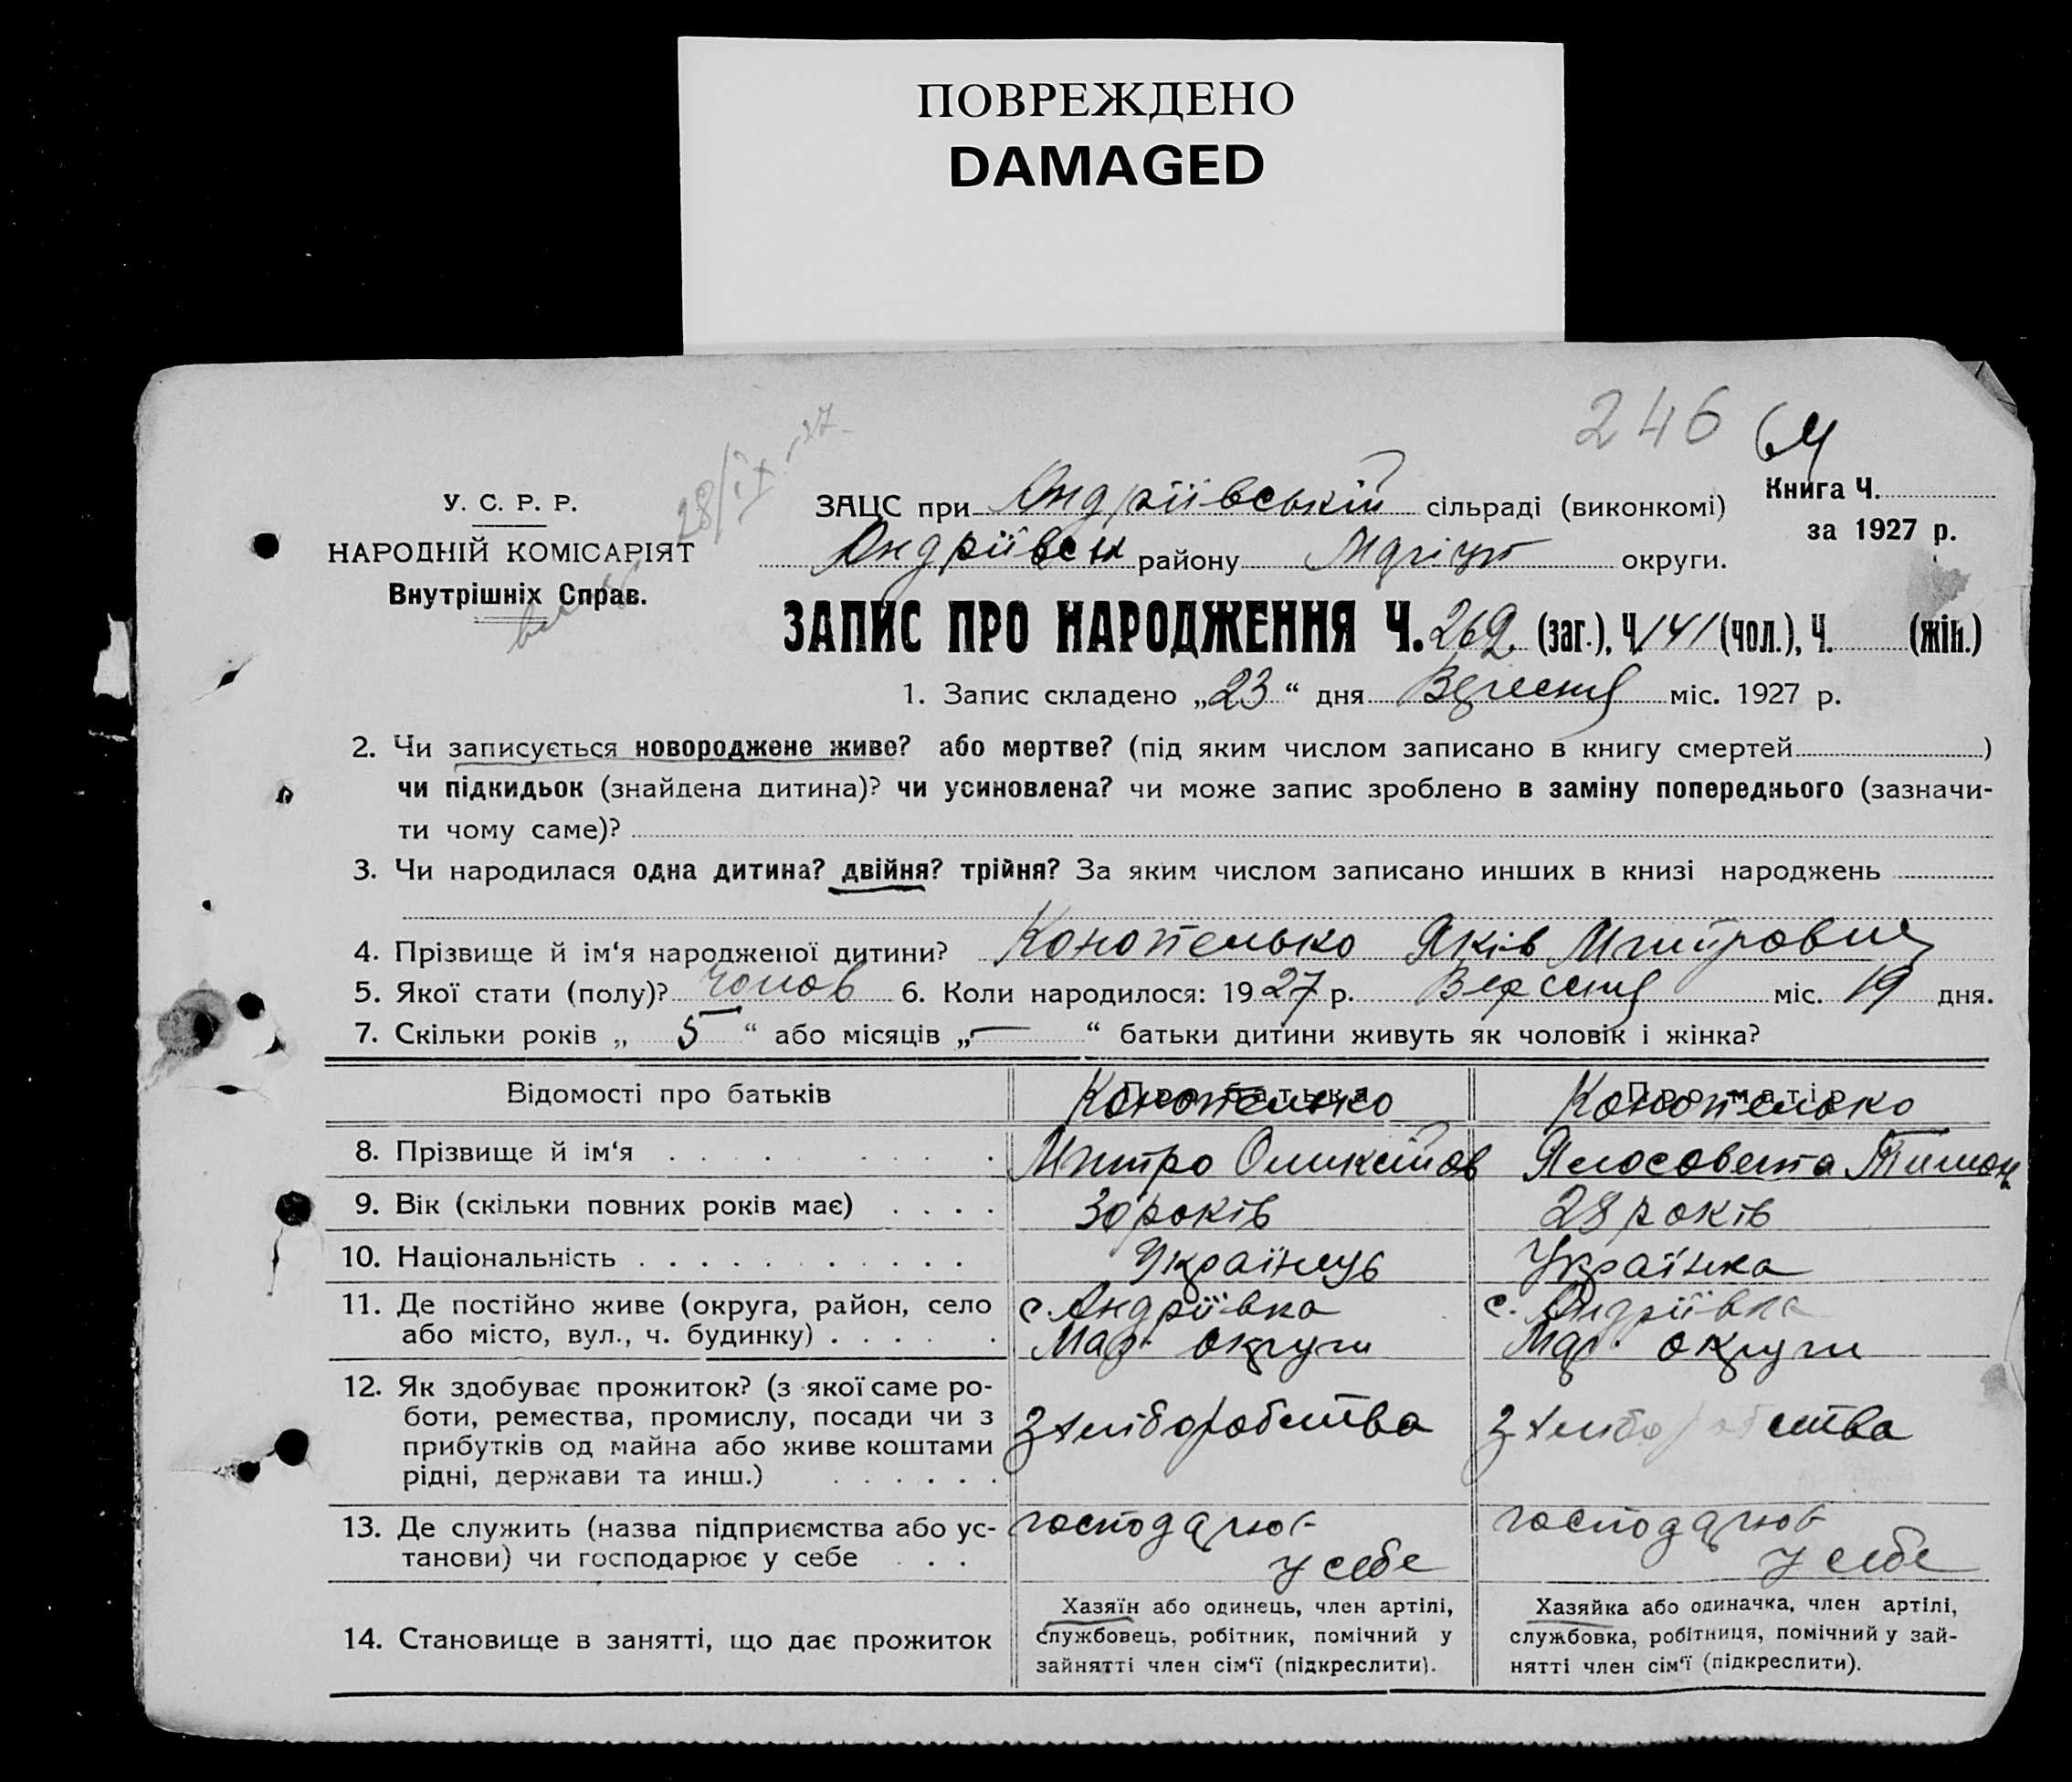 ПОВРЕЖДЕНО
DAMAGED
246 64
28/IX-27
У. С. Р. Р.
НАРОДНІЙ КОМІСАРІЯТ
Внутрішніх Справ.
ЗАЦС при Андріївській сільраді (виконкомі)
Андріївськ району Маріуп округи.
Книга Ч.
за 1927 р.
ЗАПИС ПРО НАРОДЖЕННЯ Ч. 269 (заг.), Ч. 141 (чол.), Ч. (жін.)
1. Запис складено „23“ дня Вересня міс. 1927 р.
2. Чи записується новороджене живе? або мертве? (під яким числом записано в книгу смертей )
чи підкидьок (знайдена дитина)? чи усиновлена? чи може запис зроблено в заміну попереднього (зазначи-
ти чому саме)?
3. Чи народилася одна дитина? двійня? трійня? За яким числом записано инших в книзі народжень
4. Прізвище й ім‘я народженої дитини? Конопелько Яків Митрович
5. Якої стати (полу)? чолов 6. Коли народилося: 1927 р. Вересня міс. 19 дня.
7. Скільки років „ 5 “ або місяців „ — “ батьки дитини живуть як чоловік і жінка?
Відомості про батьків Про батька Про матір
Конопелько Конопелько
8. Прізвище й ім‘я Митро Оликсійов Ялосовета Тимоф
9. Вік (скільки повних років має) 30 років 28 років
10. Національність Українець Українка
11. Де постійно живе (округа, район, село с. Андріївка с. Андріївка
або місто, вул., ч. будинку) Мар. округи Мар. округи
12. Як здобуває прожиток? (з якої саме ро-
боти, ремества, промислу, посади чи з з хліборобства з хліборобства
прибутків од майна або живе коштами
рідні, держави та инш.)
13. Де служить (назва підприємства або ус- господарює господарює
танови) чи господарює у себе у себе у себе
14. Становище в занятті, що дає прожиток
Хазяїн або одинець, член артілі,
службовець, робітник, помічний у
зайнятті член сім‘ї (підкреслити).
Хазяйка або одиначка, член артілі,
службовка, робітниця, помічний у зай-
нятті член сім‘ї (підкреслити).